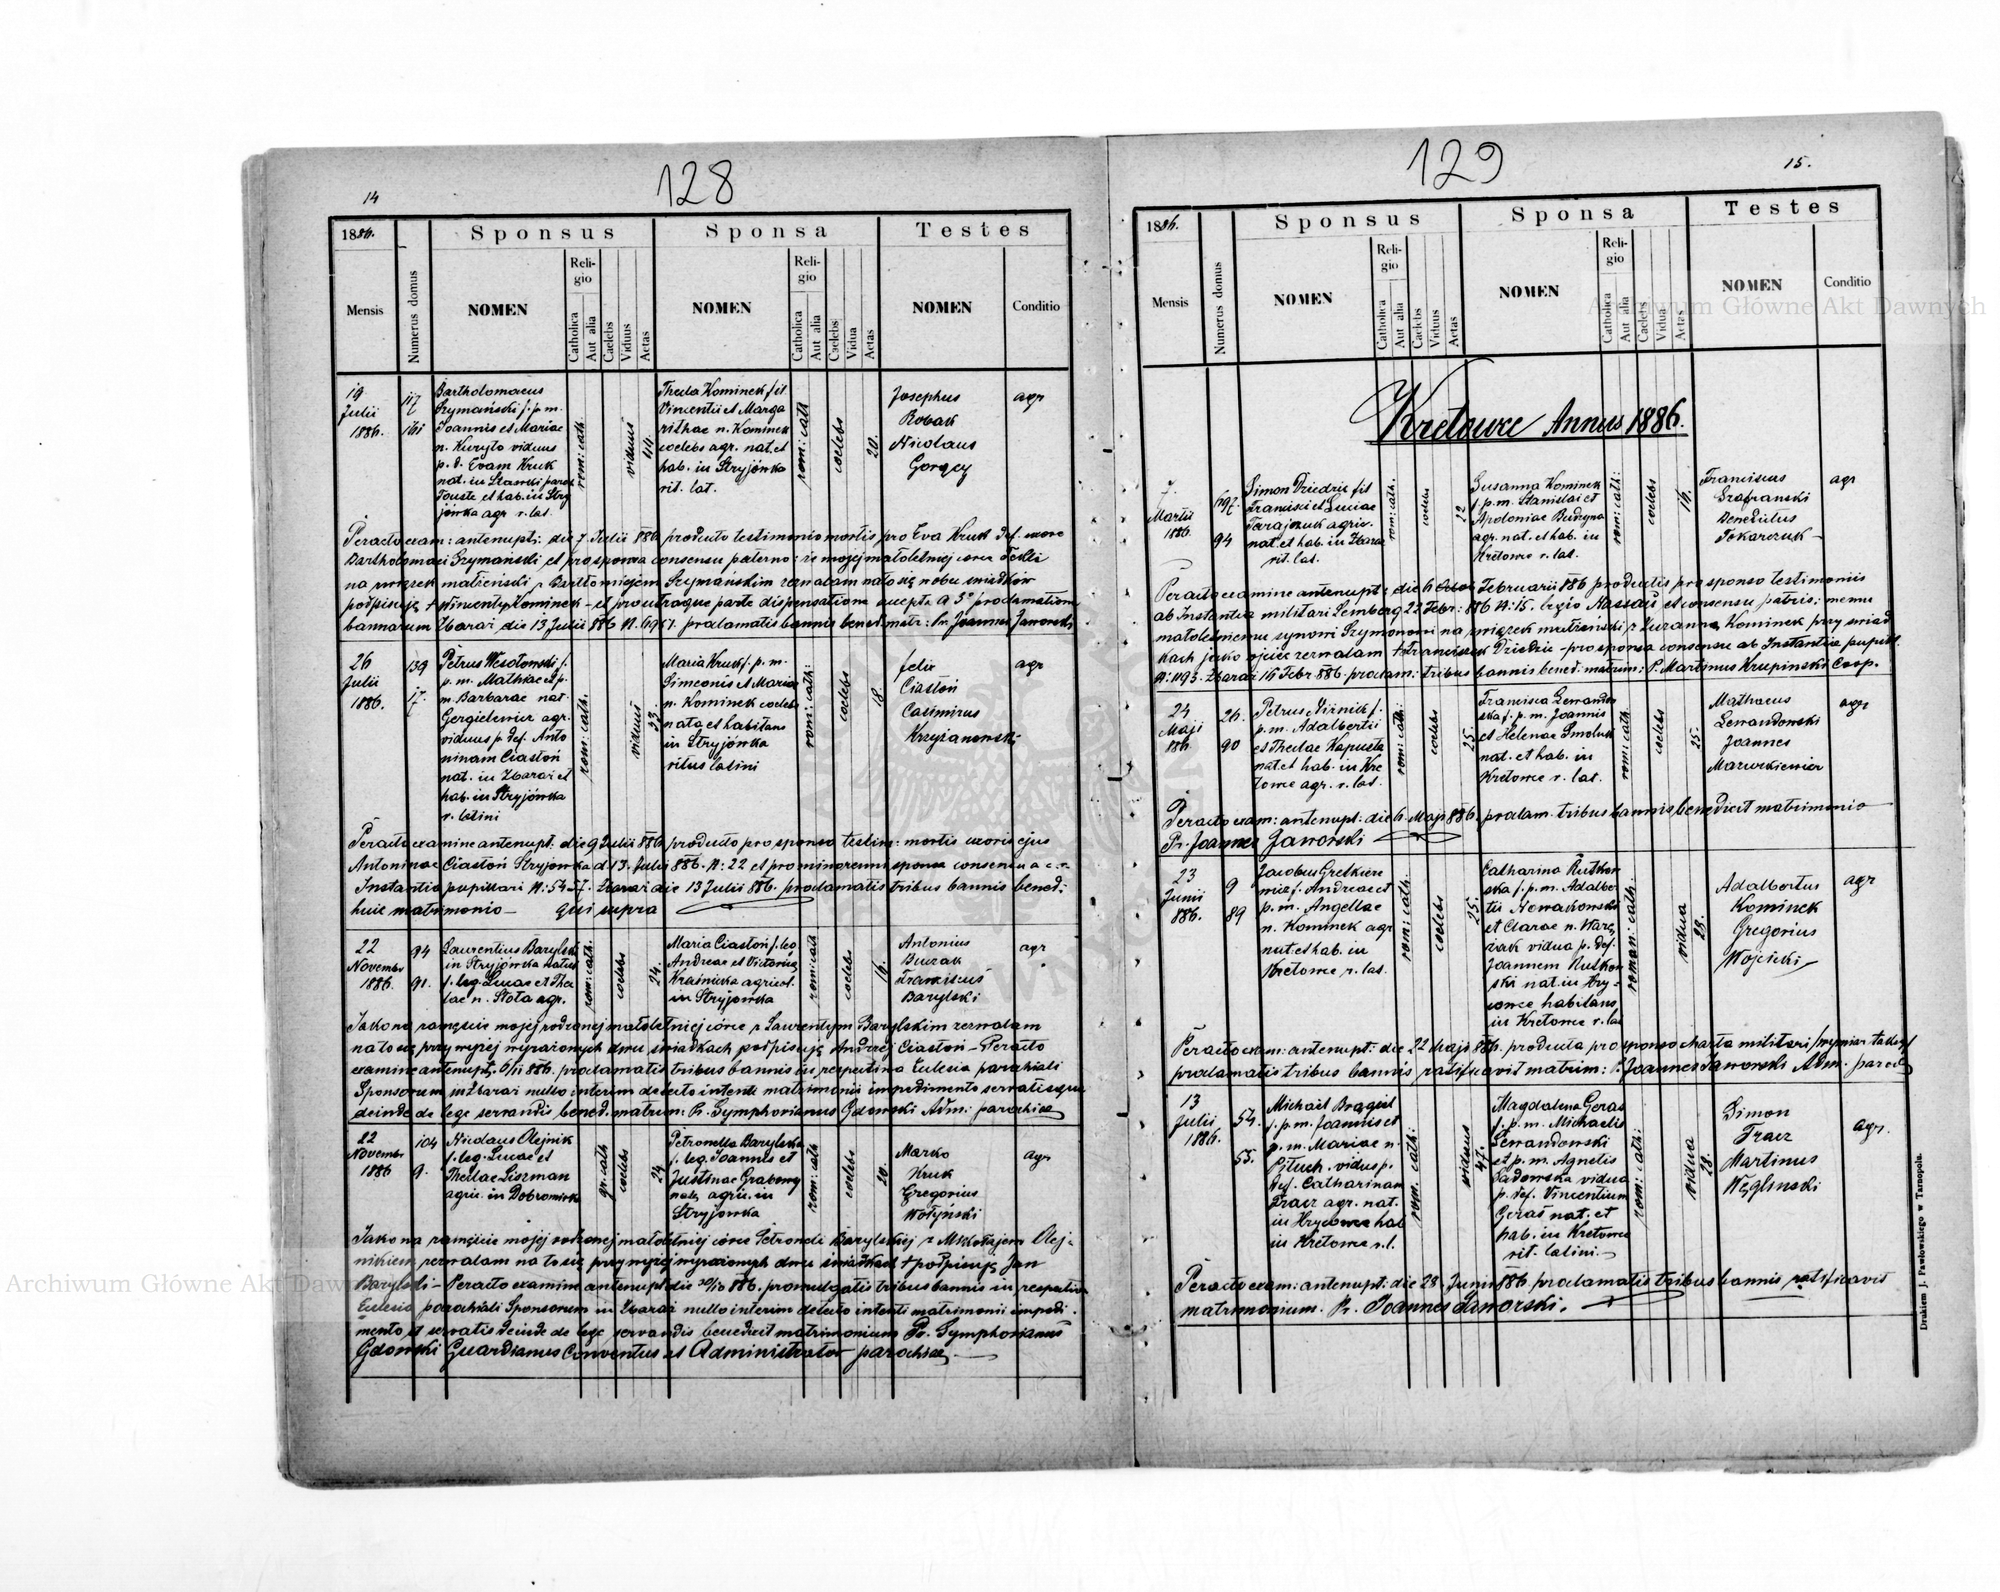 14
128
1886.
Sponsus
Sponsa
Testes
Mensis
Numerus domus
NOMEN
Religio
Catholica
Aut alia
Caelebs
Viduus
Aetas
NOMEN
Religio
Catholica
Aut alia
Caelebs
Vidua
Aetas
NOMEN
Conditio
19
Julii
1886.
117
161
Bartholomaeus
Szymański f. p. m.
Joannis et Mariae
n. Kuryło viduus
p. d. Evam Kruk
nat. in
Touste et hab. in Stry
jówka agr r. lat.
rom: cath.
viduus
44.
Thecla Kominek fil
Vincentii et Marga
rithae n. Kominek
coelebs agr. nat. et
hab. in Stryjówka
rit. lat.
rom: cath
coelebs
20.
Josephus
Bobak
Nicolaus
Gorący
agr
Peracto exam: antenupt: die 7 Julii 886 producto testimonio mortis pro Eva Kruk def. uxore
Bartholomaei Szymański et pro sponsa consensu paterno: iż mojej małoletniej córce Tekli
na związek małżeński z Bartłomiejem Szymańskim zezwalam na to się w obec świadków
podpisuję + Wincenty Kominek – et pro utraque parte dispensatione accepta a 3º proclamatione
bannorum Zbaraż die 13 Julii 886 N. 6951. proclamatis bannis bened. matr: Pr. Joannes Jaworski
26
Julii
1886.
139
17.
Petrus Wesołowski f.
p. m. Mathiae et p.
m. Barbarae nat.
Gergielewicz agr.
viduus p. def. Anto
ninam Ciastoń
nat. in Zbaraż et
hab. in Stryjówka
r. latini
rom: cath.
viduus
33.
Maria Kruk f. p. m.
Simeonis et Mariae
n. Kominek coelebs
nata et habitans
in Stryjówka
ritus latini
rom: cath:
coelebs
18.
Felix
Ciastoń
Casimirus
Krzyżanowski
agr
Peracto examine antenupt. die 9 Julii 886 producto pro sponso testim: mortis uxoris ejus
Antoninae Ciastoń Stryjówka d. 13. Julii 886. N: 22 et pro minorenni sponsa consensu a c. r.
Instantia pupillari N: 5457. Zbaraż die 13 Julii 886. proclamatis tribus bannis bened:
huic matrimonio – qui supra
22
Novembr
1886.
94
91.
Laurentius Barylski
in Stryjówka natus
f. leg. Lucae et The
clae n. Stota agr.
rom: cath.
coelebs
24.
Maria Ciastoń f. leg
Andreae et Victoriae
Kraśnicka agricol.
in Stryjówka
rom: cath
coelebs
16.
Antonius
Buczak
Franciscus
Barylski
agr
Jako na zamęście mojej rodzonej małoletniej córce z Laurentym Barylskim zezwalam
na to się przy wyżej wyrażonych dwu świadkach podpisuję Andrzej Ciastoń – Peracto
examine antenupt. 6/11 886. proclamatis tribus bannis in respectiva Ecclesia parochiali
Sponsorum in Zbaraż nullo interim detecto intenti matrimonii impedimento servatisque
deinde de lege servandis bened. matrim: Pr. Symphorianus Gdowski Adm: parochiae
22
Novembr
1886
104
9.
Nicolaus Olejnik
f. leg. Lucae et
Theclae Liszman
agric. in Dobromirka
gr. cath
coelebs
24
Petronella Barylska
f. leg. Joannis et
Justinae Grabowy
nata agric. in
Stryjówka
rom: cath
coelebs
20.
Marko
Kruk
Gregorius
Wołyński
agr
Jako na zamęście mojej rodzonej małoletniej córce Petroneli Barylskiej z Mikołajem Olej-
nikiem zezwalam na to się przy wyżej wyrażonych dwu świadkach + podpisuję Jan
Barylski – Peracto examine antenupt die 30/10 886. promulgatis tribus bannis in respectiva
Ecclesia parochiali Sponsorum in Zbaraż nullo interim detecto intenti matrimonii impedi-
mento et servatis deinde de lege servandis benedixit matrimonium Pr. Symphorianus
Gdowski Guardianus Conventus et Administrator parochiae
129
15.
1886.
Sponsus
Sponsa
Testes
Mensis
Numerus domus
NOMEN
Religio
Catholica
Aut alia
Caelebs
Viduus
Aetas
NOMEN
Religio
Catholica
Aut alia
Caelebs
Vidua
Aetas
NOMEN
Conditio
Kretowce Annus 1886.
7.
Martii
1886.
94
Simon Dziedzic fil
Francisci et Luciae
Tarajczuk agric.
nat. et hab. in Zbaraż
rit. lat.
rom: cath.
coelebs
22
Susanna Kominek
f. p. m. Stanislai et
Apoloniae Budzyna
agr. nat. et hab. in
Kretowce r. lat.
rom: cath:
coelebs
16.
Franciscus
Szafranski
Benedictus
Tokarczuk
agr
Peracto examine antenupt: die 6 Februarii 886 productis pro sponso testimoniis
ab Instantia militari Lemberg 22 Febr: 886 N: 15. legio Nassau et consensu patris: memu
małoletniemu synowi Szymonowi na związek małżeński z Zuzanną Kominek przy świad
kach jako ojciec zezwalam + Franciszek Dziedzic – pro sponsa consensu ab Instantia pupill.
N: 1193. Zbaraż 16 Febr 886. proclam: tribus bannis bened. matrim: P. Martinus Krupinski Coop.
24
Maji
886.
26.
90
Petrus Niźnik f.
p. m. Adalbertii
et Theclae Kapusta
nat. et hab. in Kre
towce agr. r. lat.
rom: cath:
coelebs
25.
Francisca Lewandow
ska f. p. m. Joannis
et Helenae Smoluk
nat. et hab. in
Kretowce r. lat.
rom: cath.
coelebs
25.
Mathaeus
Lewandowski
Joannes
Mazurkiewicz
agr
Peracto exam: antenupt: die 6 Maji 886. proclam. tribus bannis benedixit matrimonio
Pr. Joannes Jaworski
23
Junii
886.
9
89
Jacobus Gretkiere
wicz f. Andreae et
p. m. Angellae
n. Kominek agr
nat. et hab. in
Kretowce r. lat.
rom: cath.
coelebs
25.
Catharina Rutkow
ska f. p. m. Adalber
tii Nowakowski
et Clarae n. Warę
żak vidua p. def.
Joannem Rutkow
ski nat. in Hry-
cowce habitans
in Kretowce r. lat
roman: cath.
vidua
28.
Adalbertus
Kominek
Gregorius
Wojcicki
agr
Peracto exam: antenupt: die 22 Maji 886. producta pro sponso charta militari
proclamatis tribus bannis ratificavit matrim: P. Joannes Jaworski Adm. paroch
13
Julii
1886.
54.
55.
Michael Brągiel
f. p. m. Joannis et
p. m. Mariae n.
Pituch. vidus p.
def. Catharinam
Tracz agr. nat.
in Hrycowce hab
in Kretowce r. l.
rom. cath:
viduus
47.
Magdalena Geras
f. p. m. Michaelis
Lewandowski
et p. m. Agnetis
Sadowska vidua
p. def. Vincentium
Geraś nat. et
hab. in Kretowce
rit. latini. –
rom: cath:
vidua
28.
Simon
Tracz
Martinus
Węglinski
agr.
Peracto exam: antenupt: die 28 Junii 886 proclamatis tribus bannis ratificavit
matrimonium. Pr. Joannes Jaworski.
Drukiem J. Pawłowskiego w Tarnopolu.
Archiwum Główne Akt Dawnych
Archiwum Główne Akt Dawnych